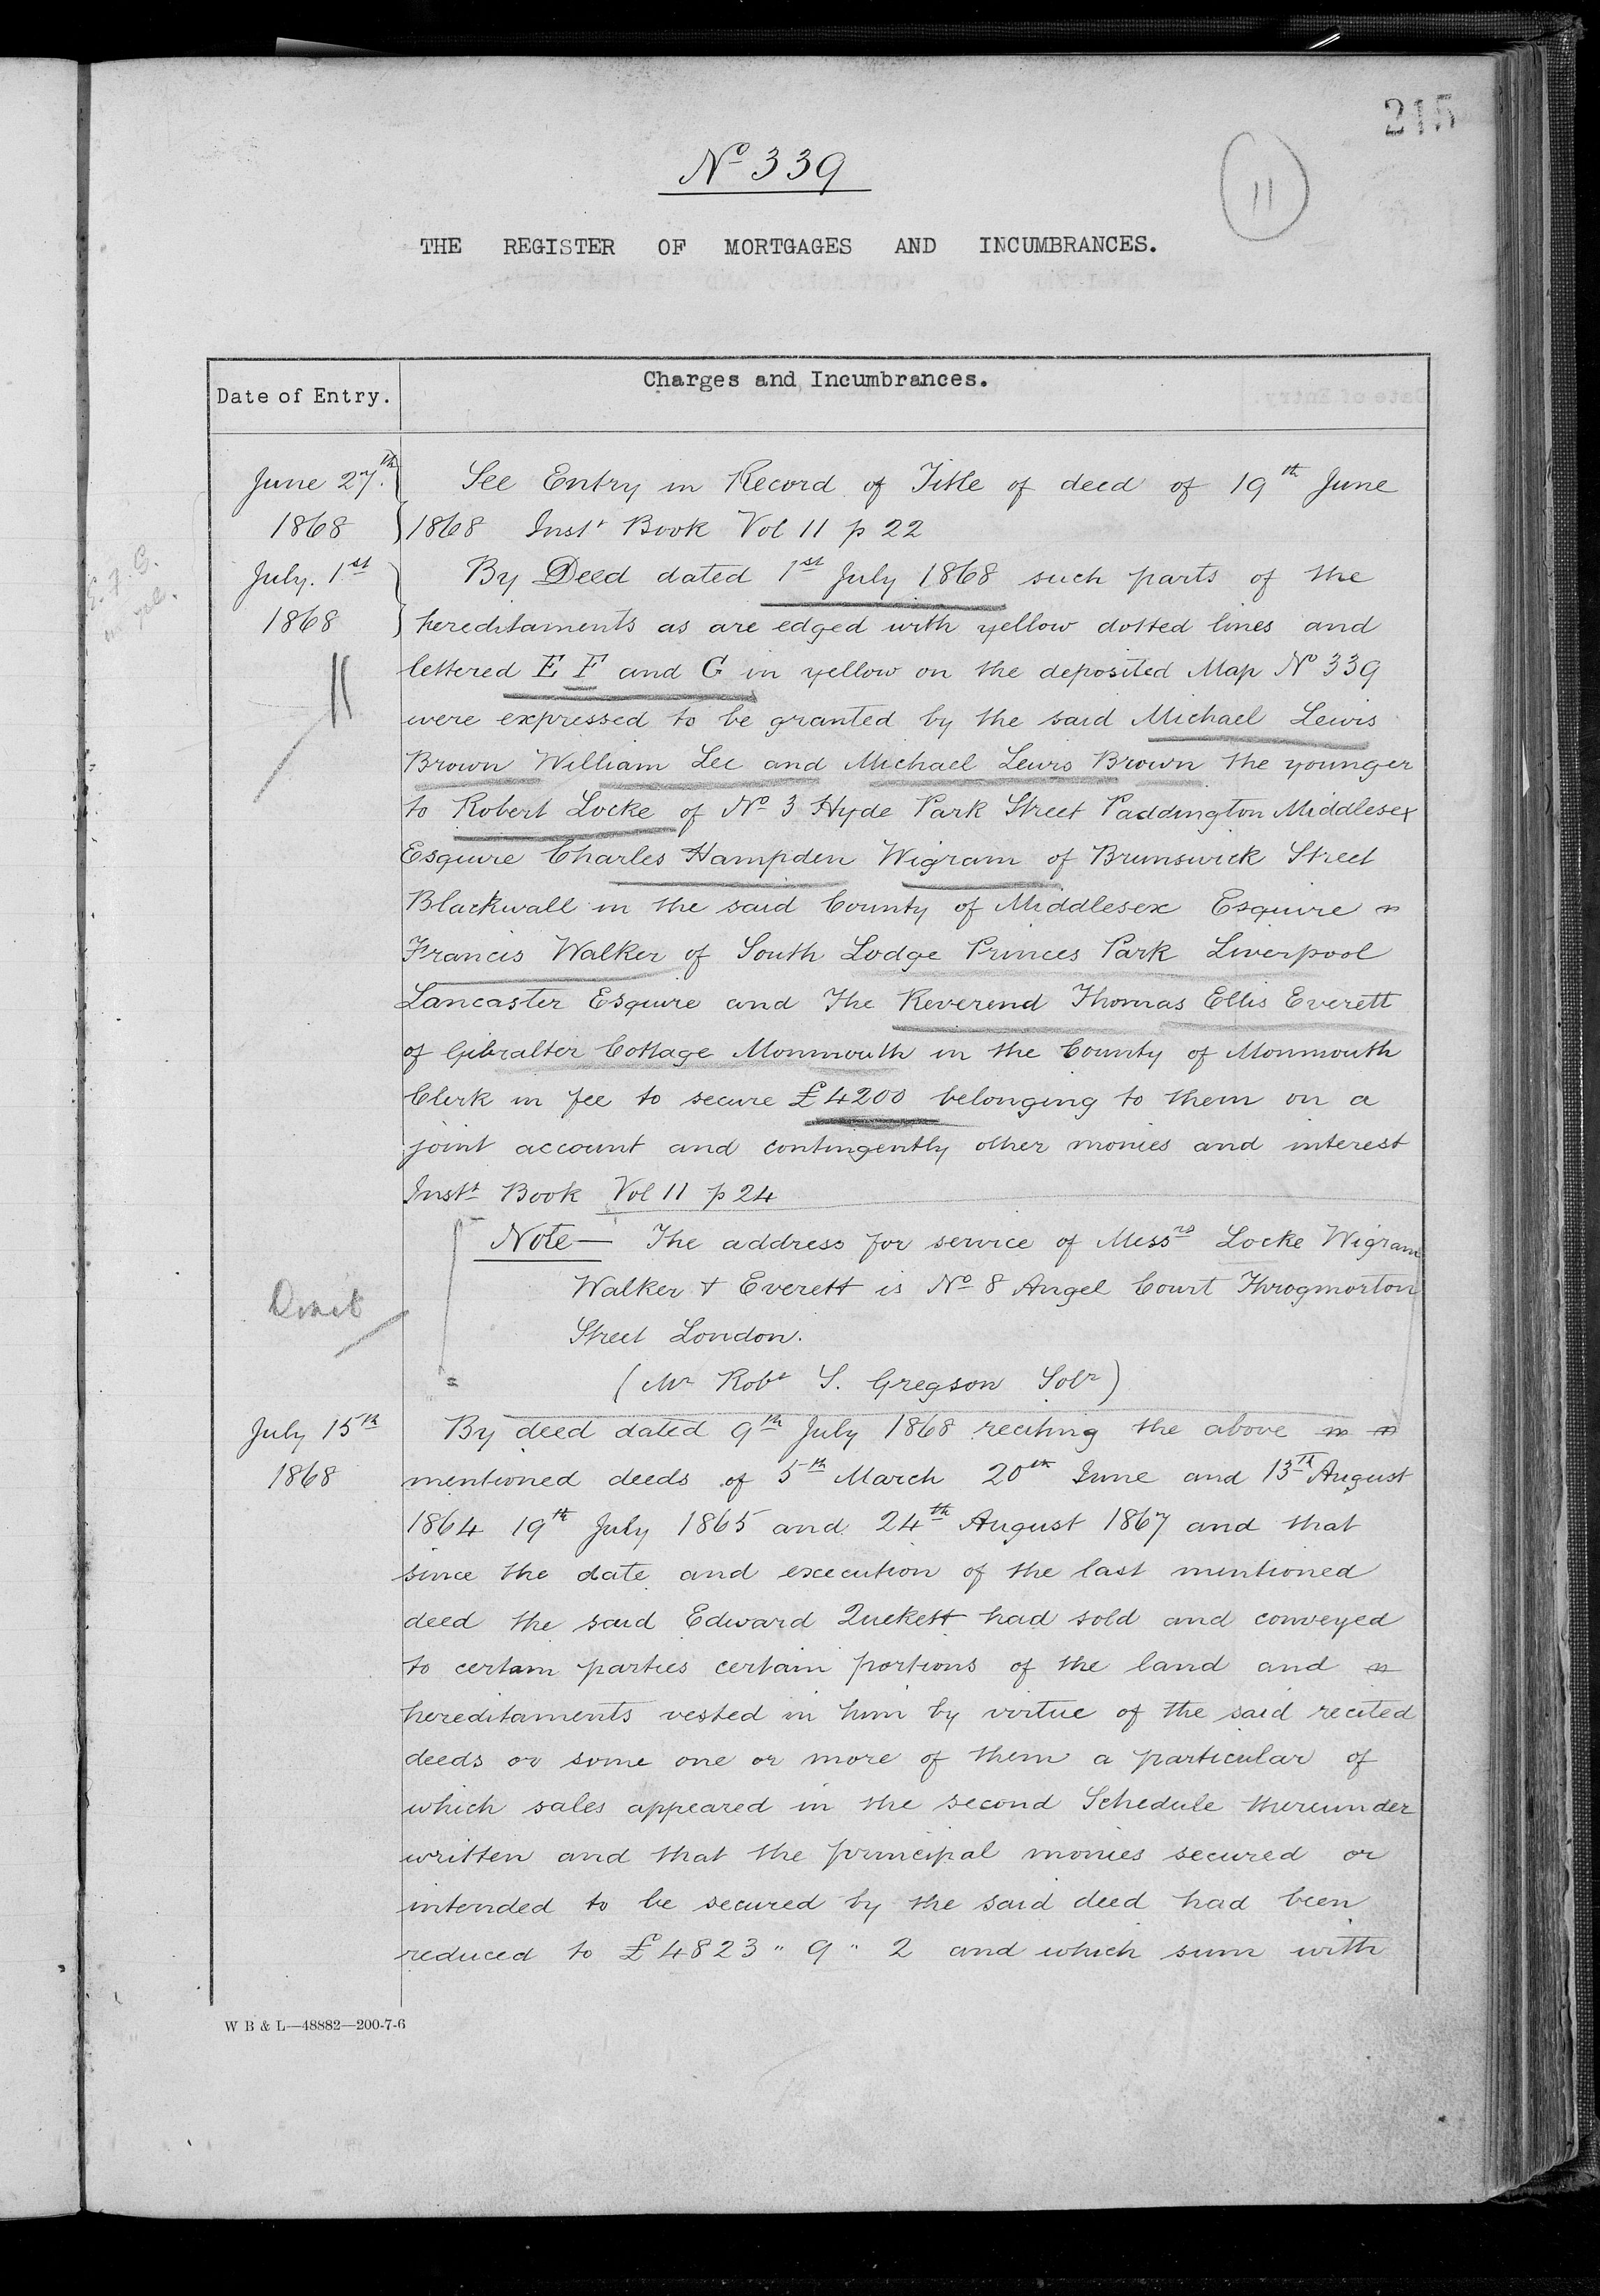 215
Nº 339
11
THE REGISTER OF MORTGAGES AND INCUMBRANCES.
Date of Entry.
Charges and Incumbrances.
June 27th
1868
See Entry in Record of Title of deed of 19th June
1868 Inst Book Vol 11 p 22
July. 1st
1868
By Deed dated 1st July 1868 such parts of the
hereditaments as are edged with yellow dotted lines and
lettered E F and G in yellow on the deposited Map Nº 339
were expressed to be granted by the said Michael Lewis
Brown William Lee and Michael Lewis Brown the younger
to Robert Locke of Nº 3 Hyde Park Street Paddington Middlesex
Esquire Charles Hampden Wigram of Brunswick Street
Blackwall in the said County of Middlesex Esquire
Francis Walker of South Lodge Princes Park Liverpool
Lancaster Esquire and The Reverend Thomas Ellis Everett
of Gibralter Cottage Monmouth in the County of Monmouth
Clerk in fee to secure £4200 belonging to them on a
joint account and contingently other monies and interest
Inst Book Vol 11 p 24
Note— The address for service of Messrs Locke Wigram
Walker & Everett is Nº 8 Angel Court Throgmorton
Street London.
(Mr Robt S. Gregson Solr)
Omit
July 15th
1868
By deed dated 9th July 1868 reciting the above
mentioned deeds of 5th March 20th June and 13th August
1864 19th July 1865 and 24th August 1867 and that
since the date and execution of the last mentioned
deed the said Edward Quekett had sold and conveyed
to certain parties certain portions of the land and
hereditaments vested in him by virtue of the said recited
deeds or some one or more of them a particular of
which sales appeared in the second Schedule thereunder
written and that the principal monies secured or
intended to be secured by the said deed had been
reduced to £4823 " 9 " 2 and which sum with
W B & L—48882—200-7-6